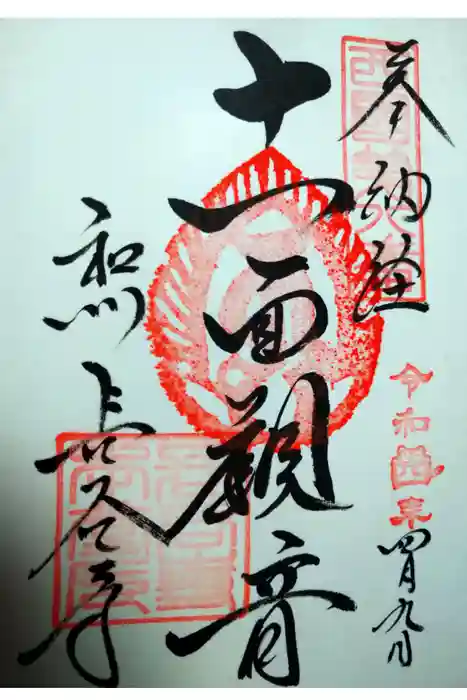 奉納経
令和四年
四月九日
十一面観音
和州
長谷寺